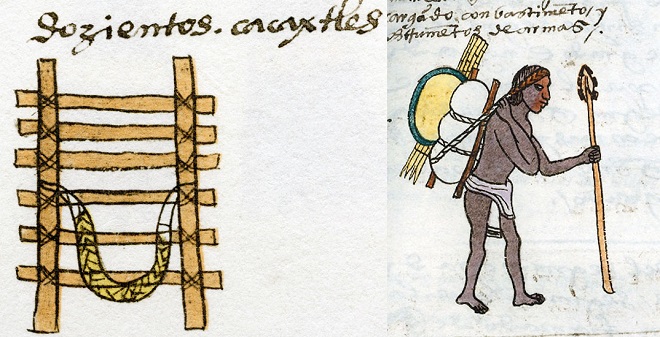 dozientos. cacaxtles
cargado, con bastimētos, y
de armas /.